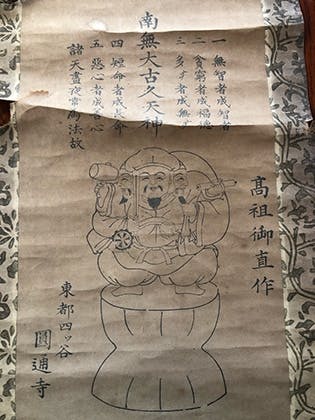 南無大古久天神
一 無智者成智者
二 貧窮者成福德
三 多 者成無
四 短命者成長命
五 惡心者成善心
諸天晝夜常爲法故
高祖御直作
東都四ッ谷
圓通寺